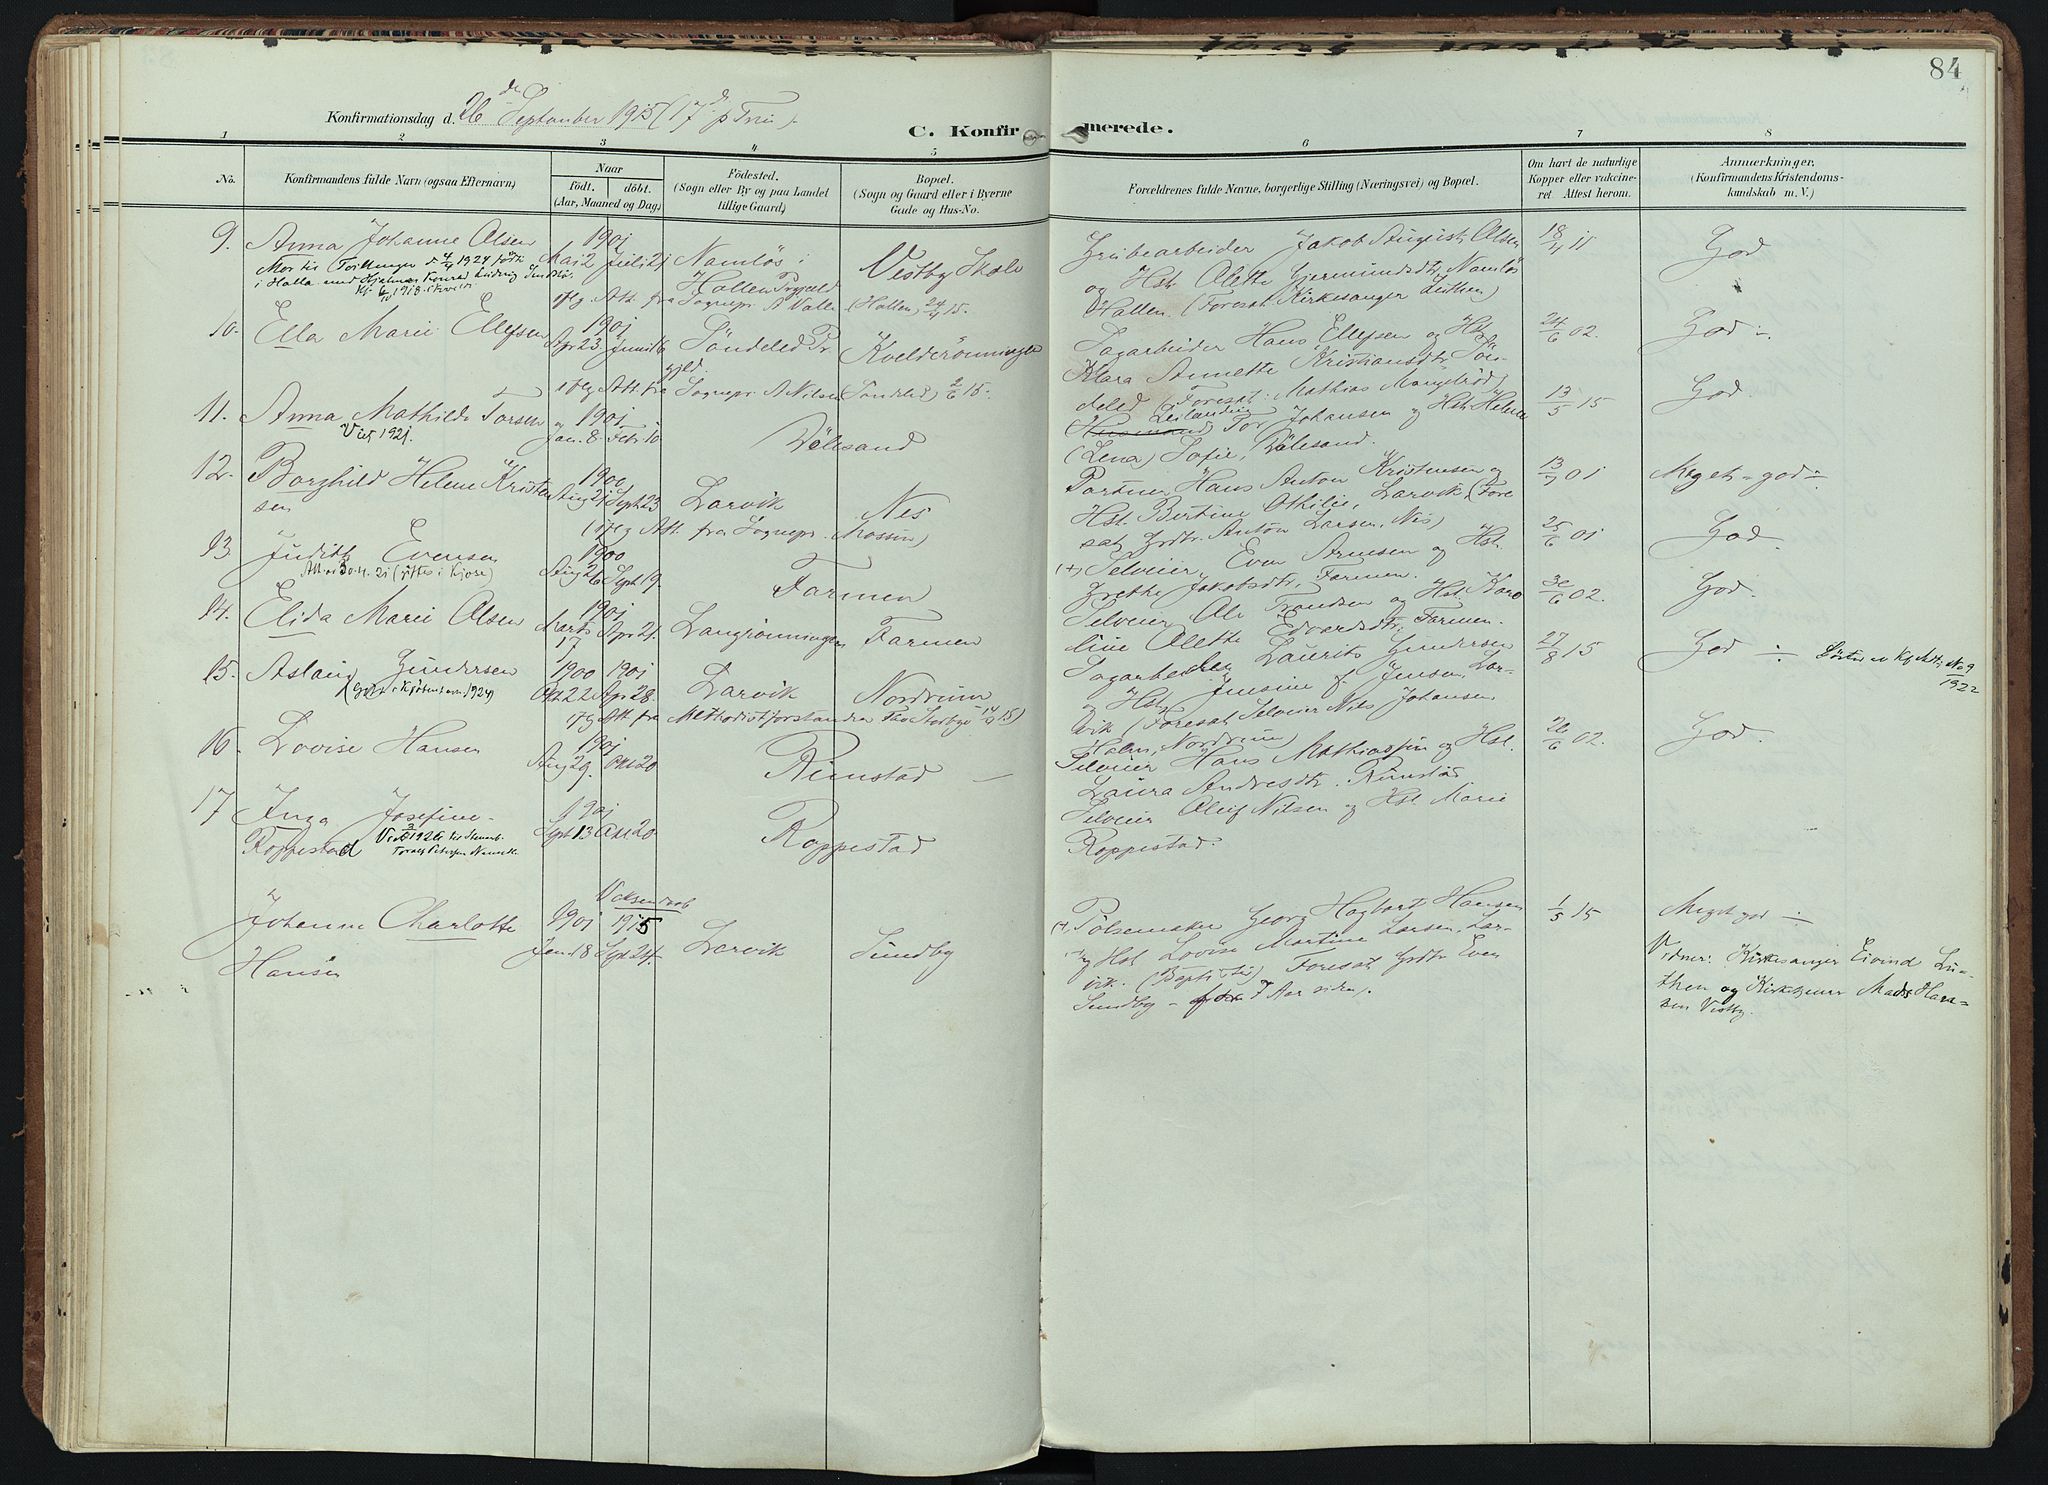 84
Konfirmationsdag d. 26de September 1915 (17de p Trin).
C. Konfirmerede.
1 2 3 4 5 6 7 8
No.
Konfirmandens fulde Navn (ogsaa Efternavn)
Naar
födt. döbt.
(Aar, Maaned og Dag)
Födested.
(Sogn eller By og paa Landet
tillige Gaard)
Bopæl.
(Sogn og Gaard eller i Byerne
Gade og Hus-No.
Forældrenes fulde Navne, borgerlige Stilling (Næringsvei) og Bopæl.
Om havt de naturlige
Kopper eller vaccine-
ret Attest herom.
Anmærkninger.
(Konfirmandens Kristendoms-
kundskab m. V.)
9. Anna Johanne Olsen
1901
Mai 2 Juli 21
Namlös i
Hollen Prgjeld
Vestby Skole
iflg. Att. fra Sognepr. A Valle (Hollen) 24/4 15.
Grubearbeider Jakob August Olsen
og Hst. Olette Gjermundsdtr, Namlös
Hollen. (Foresat Kirkesanger Luthen)
18/11 11
God
10. Ella Marie Ellefsen
1901
Apr 23 Juni 16
Söndeled Pr.
gjeld.
Kvelderönningen
iflg. Att. fra Sognepr. A Nilsen Söndeled) 2/6 15.
Sagarbeider Hans Ellefsen og Hst.
Klara Annette Kristiansdtr Sön-
deled (Foresat: Mathias Mangelröd)
24/6 02.
God ÷
11. Anna Mathilde Torsen
Viet 1921.
1901
Jan. 8 Febr 10
Dölesand
Husmand Leilending Tor Johansen og Hst. Helene
(Lena) Sofie, Dölesand.
13/5 15
God.
12. Borghild Helene Kristen
sen
1900
Aug 21 Sept 23
Larvik
Nes
(iflg. Att. fra Sognepr. Mossin)
Hans Anton Kristensen og
Hst. Bertine Othilie, Larvik (Fore
sat Grdtr. Anton Larsen, Nes)
13/7 01
Meget-god ÷
13 Judith Evensen
Att. 30.4.21 (giftes i Kjose)
1900
Aug 26 Sept 19.
Farmen
(+) Selveier, Even Arnesen og Hst.
Grethe Jakobsdtr, Farmen.
25/6 01
God.
14. Elida Marie Olsen
1901
Marts 17 Apr 21.
Langrönningen
Farmen
Selveier Ole Trondsen og Hst. Karo
line Olette Edvardsdtr, Farmen.
30/6 02.
God.
15. Aslaug Gundersen
(Gift i Kjöbenhavn 1924)
1900 1901
Okt. 22 Apr 28.
Larvik
Nordrum
iflg. Att. fra Methodistforstander Storbye 14/5 15)
Sagarbeider Laurits Gundersen
og Hst. Jensine f. Jensen, Lar-
vik (Foresat Selveier Nils Johansen
Holm, Nordrum)
27/8 15
God ÷
No 9
1922
16. Lovise Hansen
1901
Aug 29. Okt 20
Rimstad
Selveier Hans Mathiassen og Hst.
Laura Andresdtr. Rimstad
26/6 02.
God
17 Inga Josefine
Foppestad
1901
Sept 13 Okt 20
Roppestad
Selveier Oluf Nilsen og Hst. Marie
Roppestad.
Johanne Charlotte
Hansen
1901
Jan. 18
Voksendaab
1915
Sept 24.
Larvik
Sundby
Pölsemaker Georg Hagbart Hansen
og Hst Lovise Martine Larsen, Lar-
vik. (Baptister) Foresat Grdtr Even
Sundby – 7 Aar siden).
1/5 15
Meget god ÷
Vidner: Kirkesanger Eivind Lu-
then og Kirketjener Mads Han-
sen Vestby.